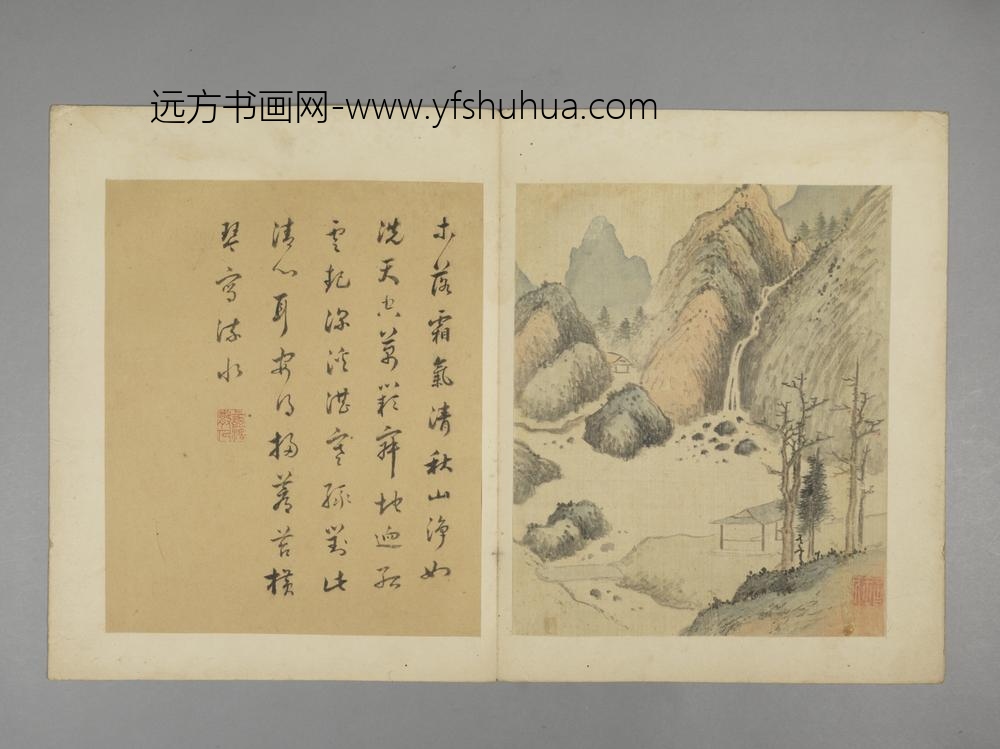 远方书画网-www.yfshuhua.com
木落霜氣清秋山淨如
洗天空萬籟寂地迥孤
雲起深溪湛寒綠對此
清心耳安得掃蒼苔橫
琴寫流水